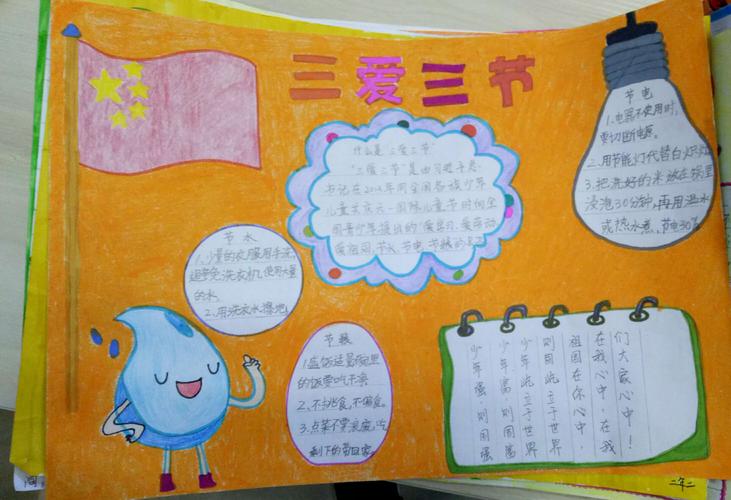 三爱三节
什么是"三爱三节"
"三爱三节"是由习近平总
书记在2013年同全国各族少年
儿童共庆六一国际儿童节时向全
国青少年提出的"爱学习、爱劳动
爱祖国,节水、节电、节粮的
节电
1.电器不使用时,
要切断电源。
2.用节能灯代替白炽灯
3.把洗好的米放在锅里
浸泡30分钟,再用温水
或热水煮,节电30%
节水
1、少量的衣服用手洗,
避免洗衣机使用大量
的水。
2、用洗衣水擦地
节粮
1.盛饭适量碗里
的饭要吃干净
2、不挑食,不偏食。
3.点菜不要浪费,吃
剩下的带回家。
们大家心中!
在我心中,在我
祖国在你心中,
则国屹立于世界
少年屹立于世界
少年富,则国富
少年强,则国强
二年二